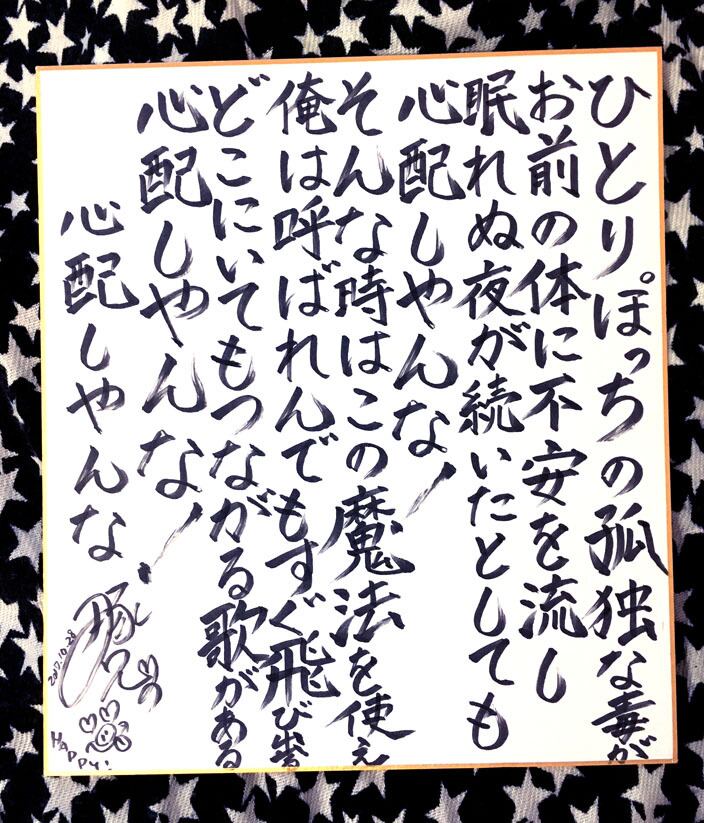 ひとりぽっちの孤独な毒が
お前の体に不安を流し
眠れぬ夜が続いたとしても
心配しやんな!
そんな時はこの魔法を使え
俺は呼ばれんでもすぐ飛び出る
どこにいてもつながる歌がある
心配しやんな!
心配しやんな!
2017.10.28
HAPPY!